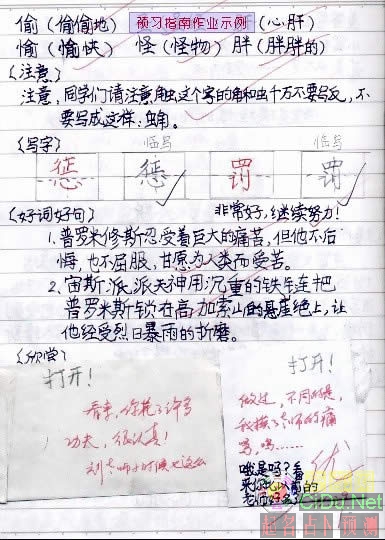 偷(偷偷地) 预习指南作业示例 (心肝)
愉(愉快) 怪(怪物) 胖(胖胖的)
《注意》
注意,同学们请注意触这个字的角和虫千万不要写反,不
要写成这样:䖝角。
《写字》 临写 临写
惩 惩 罚 罚
《好词好句》 非常好,继续努力!
1.普罗米修斯忍受着巨大的痛苦,但他不后
悔,也不屈服,甘愿为人类而受苦。
2.宙斯派派火神用沉重的铁链把
普罗米斯锁在高加索山的悬崖绝上,让
他经受烈日暴雨的折磨。
打开!
打开!
看来,你花了许多
功夫,很认真!
刘老师小时候也这么
做过,不同的是,
我摸了老师的痛
哦是吗?看
来你比以前的
优
CiDu.Net
星名占卜预测